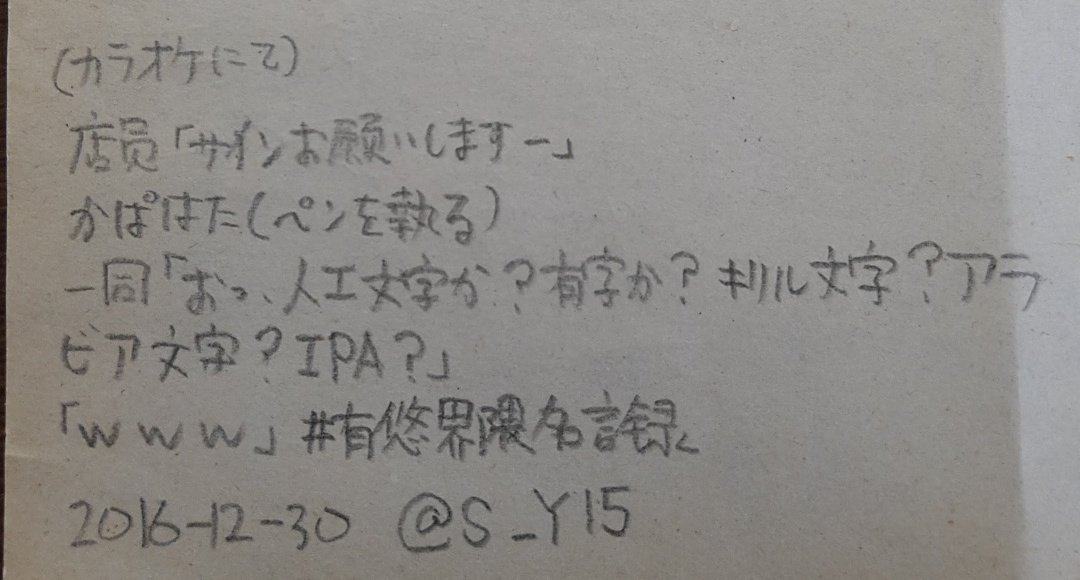 (カラオケにて)
店員「サインお願いしますー」
かぱはた(ペンを執る)
一同「おっ、人工文字か?有字か?キリル文字?アラ
ビア文字?IPA?」
「www」#有悠界隈名言録
2016-12-30 @S_Y15